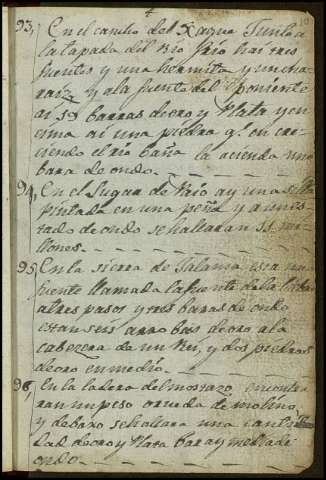 93, En el camino del Xagua Junto a
la tapada del Rio frio hai tres
fuentes y una hermita y un cha
raiz y a la fuente del Poniente
ai 50 barras de oro y Plata y en
sima ai una piedra q.e en cre
ciendo el rio baña la acienda una
bara de ondo.
94, En el Lugar de Rio ay una silla
pintada en una peña y a un es
tado de ondo se hallaran 55 mi
llones.
95, En la sierra de Jalama esta una
fuente llamada la fuente de la
a tres pasos y tres baras de ondo
estan seis arrobas de oro a la
cabezera de un Rei, y dos piedras
de oro en medio.
96, En la ladera del mostazo encontra
ran un peso o rueda de molino,
y debaxo se hallara una canti
dad de oro y Plata bara y media de
ondo.